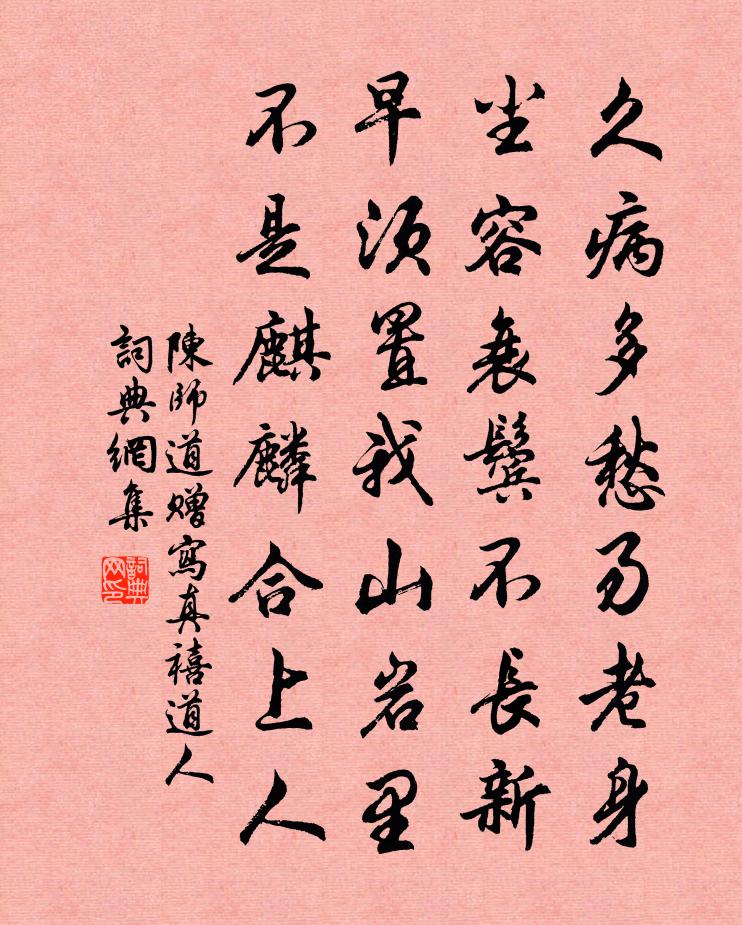 久病多愁易老身
坐容衰鬢不長新
早須置我山岩里
不是麒麟合上人
陳師道贈寫真禧道人
詞典網集
詞典网印